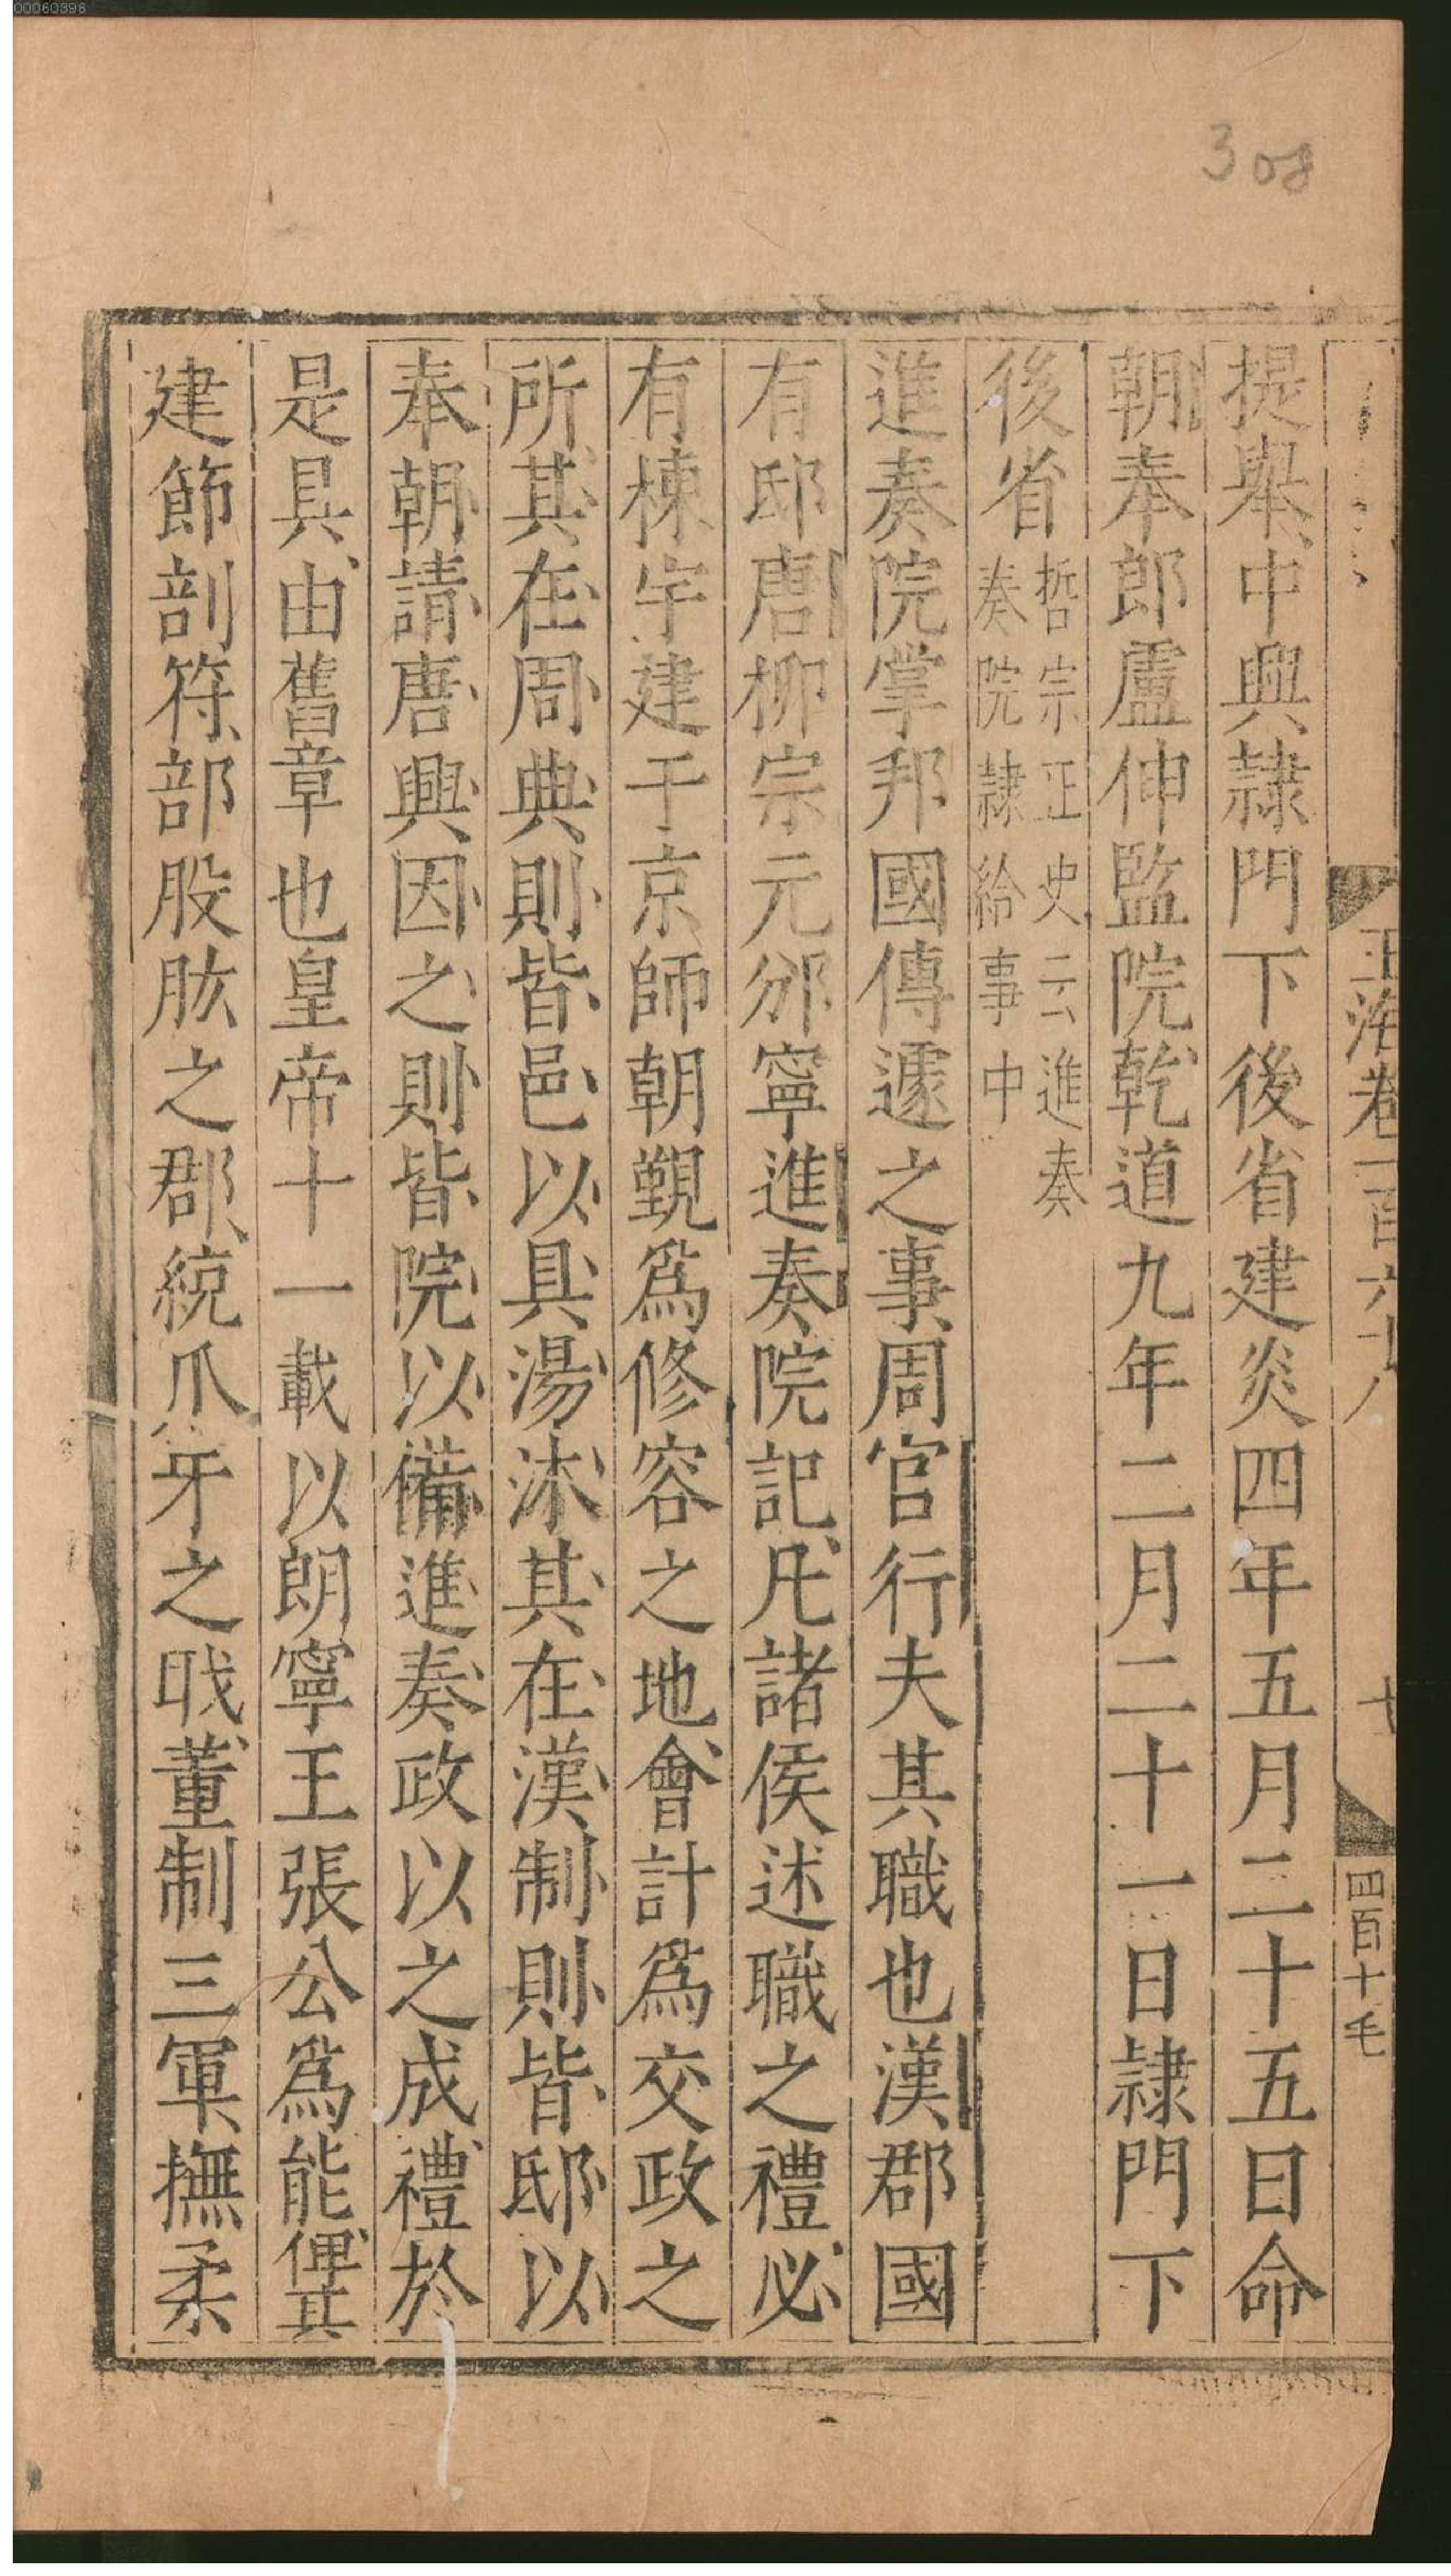 00060396
308
玉海卷一百六十八
四百十毛
提舉中興隷門下後省建炎四年五月二十五日命
朝奉郎盧伸監院乾道九年二月二十一日隷門下
後省
哲宗正史云進奏
奏院隷給事中
進奏院掌邦國傳遽之事周官行夫其職也漢郡國
有邸唐柳宗元邠寧進奏院記凡諸侯述職之禮必
有棟宇建于京師朝覲爲修容之地會計爲交政之
所其在周典則皆邑以具湯沐其在漢制則皆邸以
奉朝請唐興因之則皆院以備進奏政以之成禮於
是具由舊章也皇帝十一載以朗寧王張公爲能俾其
建節剖符部股肱之郡統爪牙之戝董制三軍撫柔